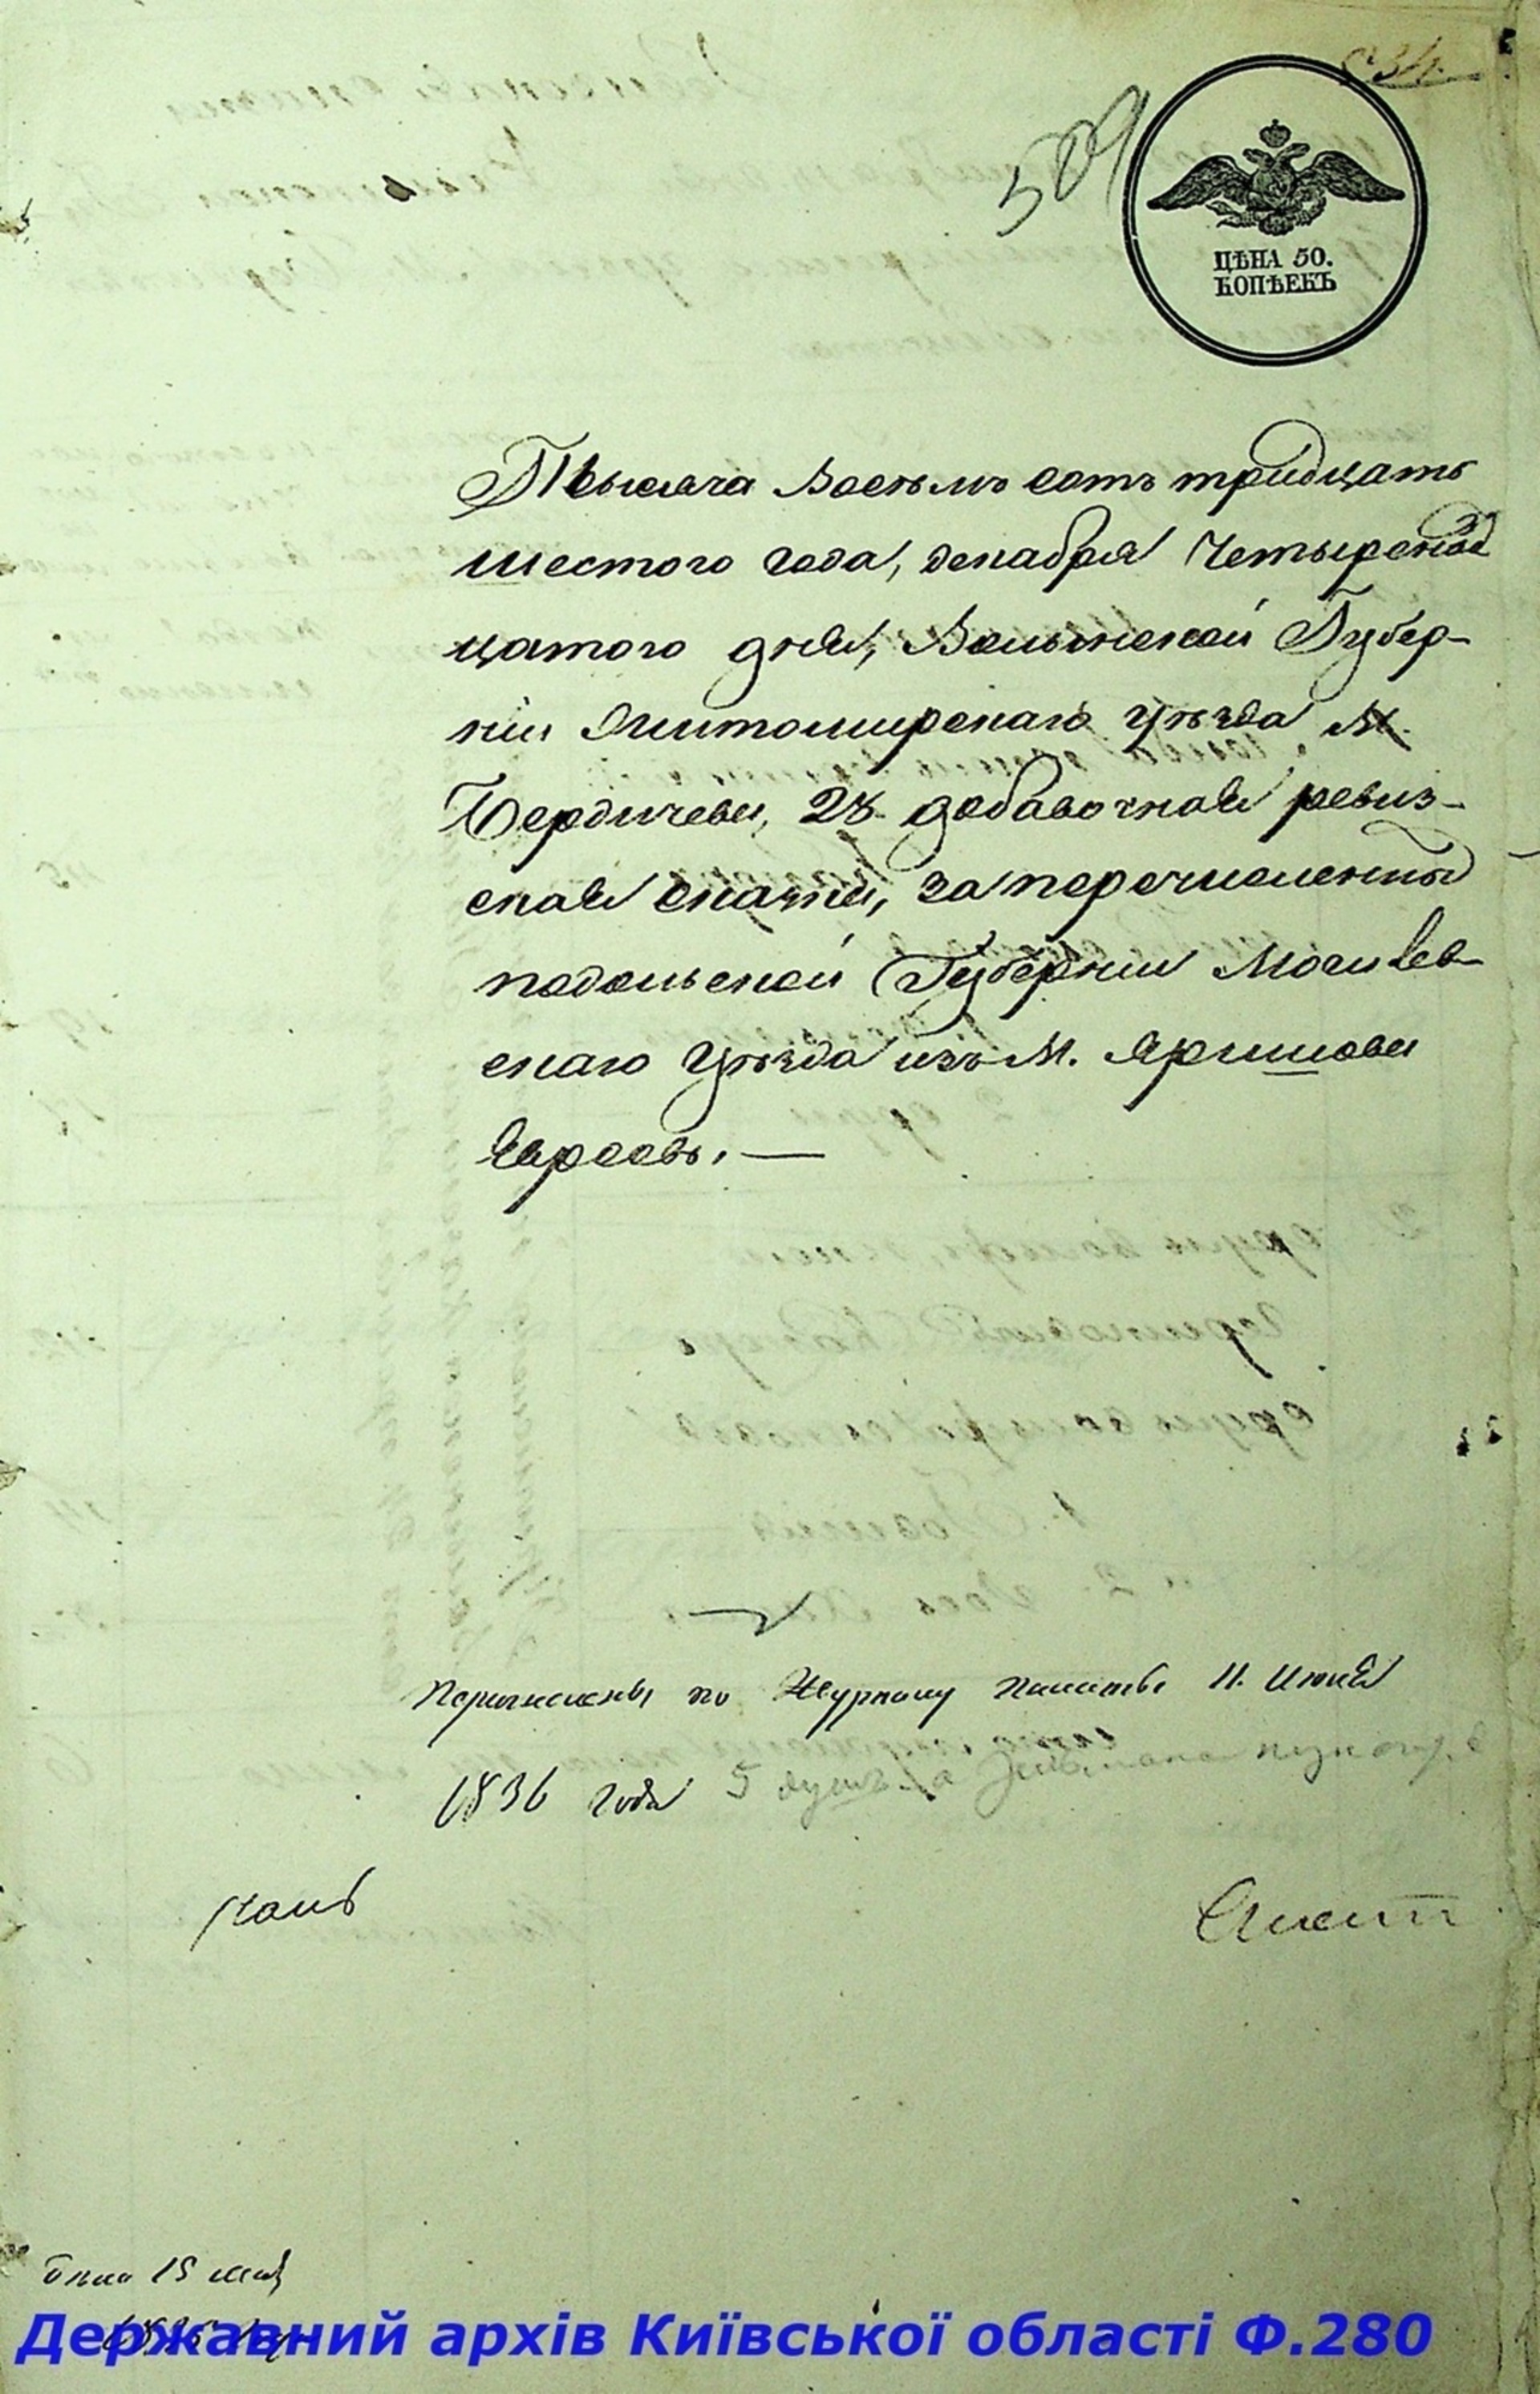 534.
509
ЦѢНА 50.
КОПѢЕКЪ
Тысяча Восемь сотъ тридцать
шестого года, декабря Четыренад
цатого дня, Волынской Губер-
нiи Житомирскаго уѣзда М.
Бердичева, 28 добавочная ревиз-
ская сказка, за перечисленных
подольской Губернiи Могилев-
скаго уѣзда изъ М. Яришова
Евреовъ. —
Перечислены по Журналу Палаты 11. Июня
1836 года 5 душъ
15 мая
Державний архів Київської області Ф.280